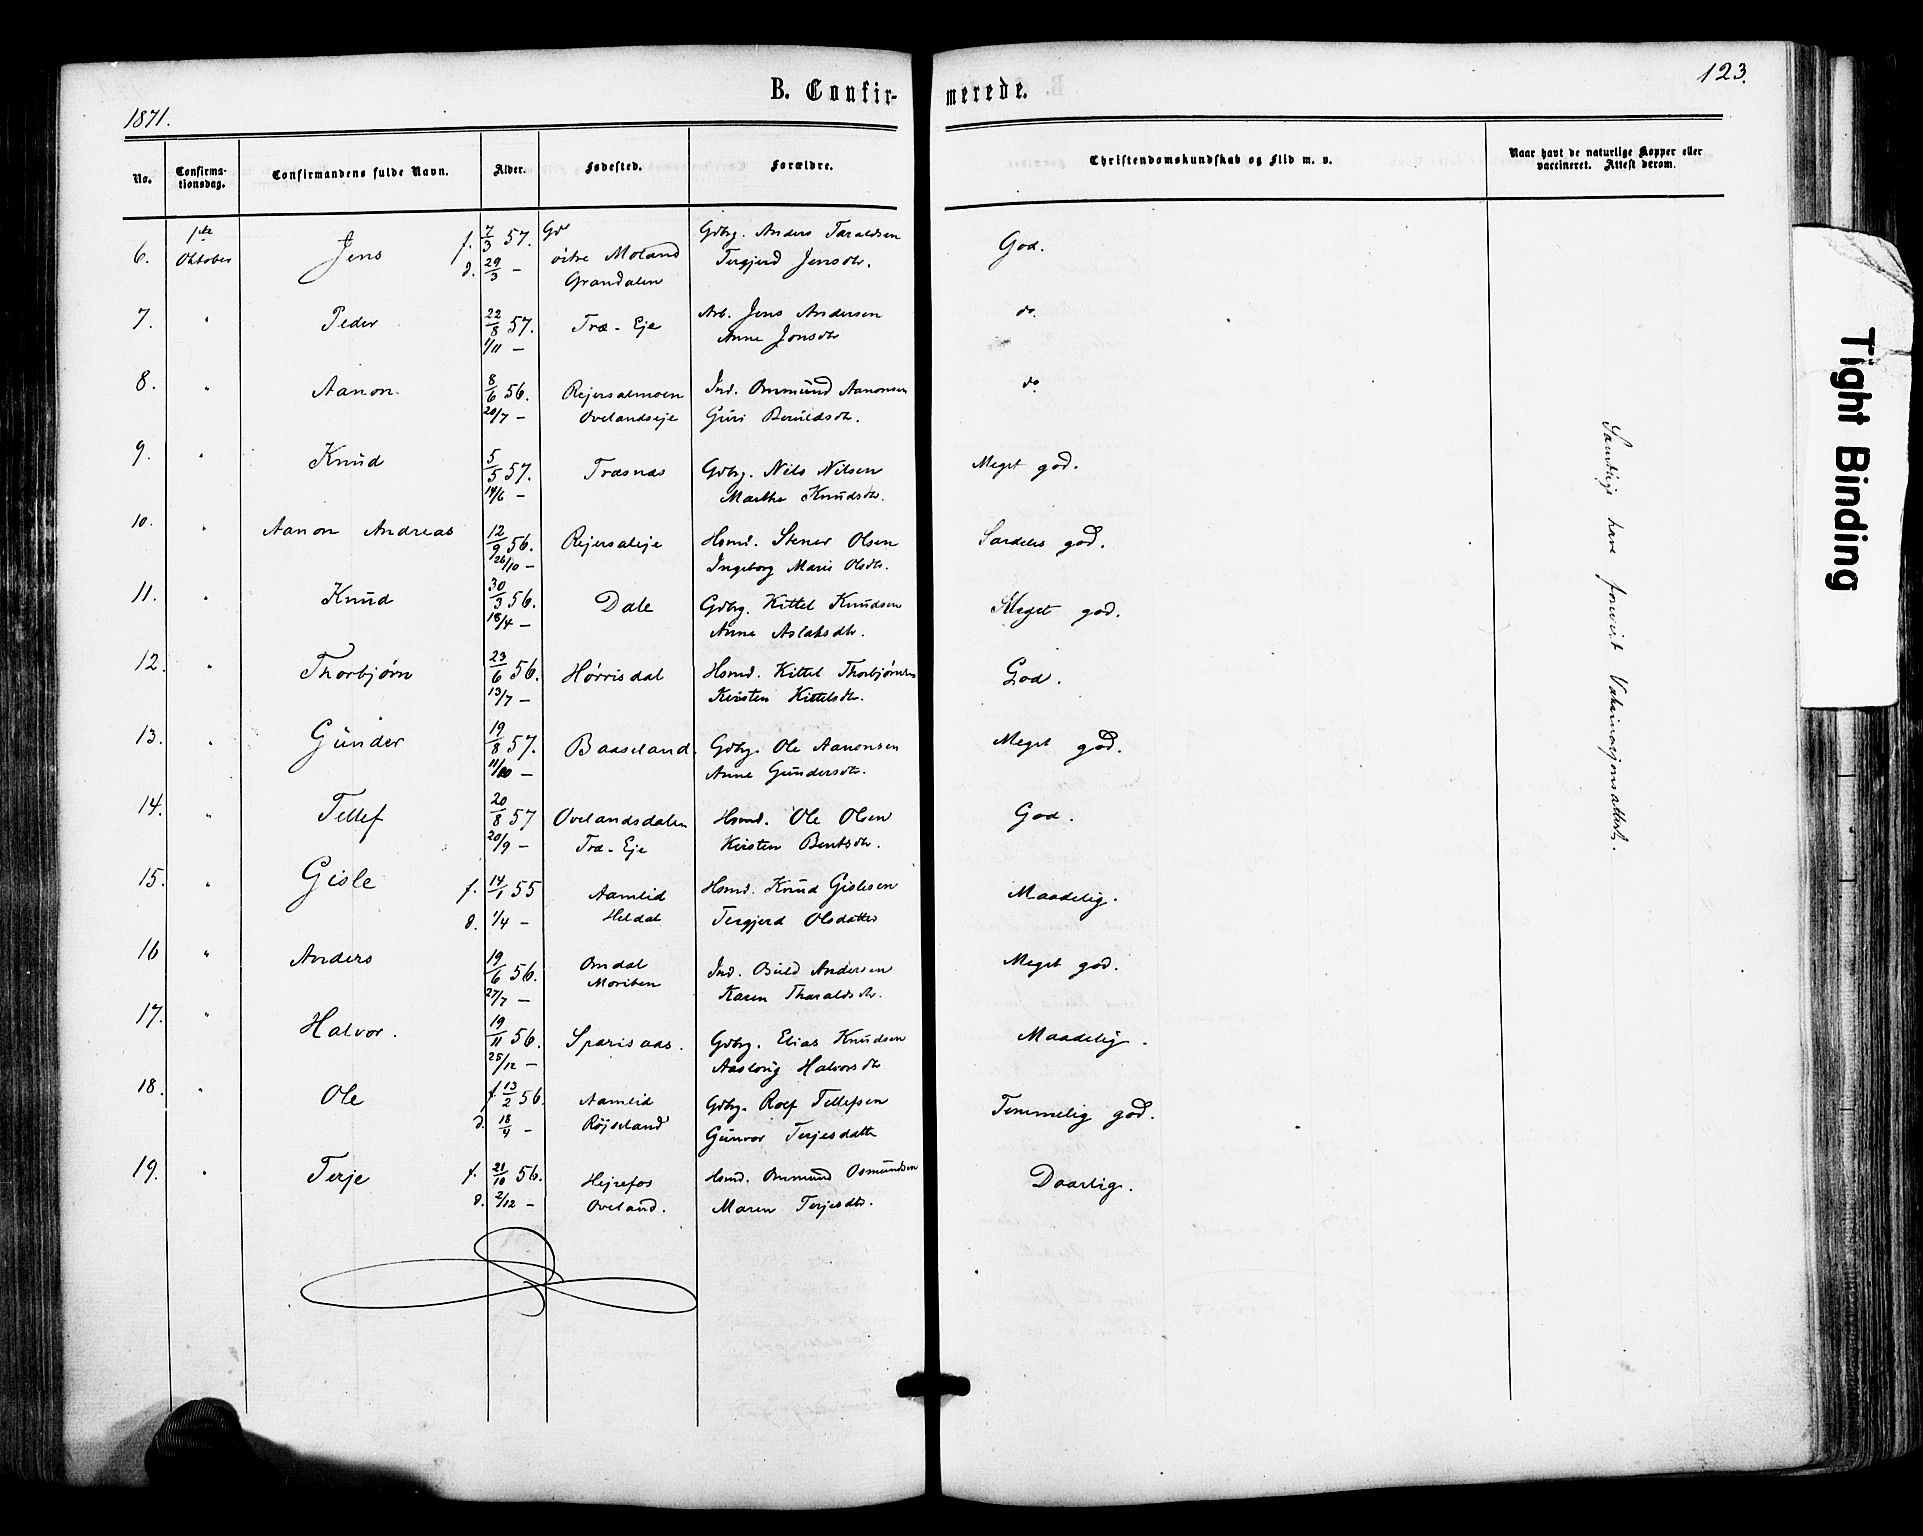 B. Confirmerede.
123.
1871.
No. Confirmationsdag. Confirmandens fulde Navn. Alder. Fødested. Forældre. Christendomskundskab og Flid m. v. Naar havt de naturlige Kopper eller vaccineret. Attest derom.
6. 1ste Oktober Jens f. 7/3 57. d. 29/3 – Gd øitre Moland Grandalen Gdbrg. Anders Taraldsen Tergjerd Jensdtr. God.
7. " Peder 22/8 57. 1/11 – Træ-Eje Arb. Jens Andersen Anne Jonsdtr do.
8. " Aanon. 8/6 56. 20/7 – Rejersalmoen Ovelandseje Ind. Ommund Aanonsen Guri Beruldsdtr. do
9. " Knud 5/5 57. 14/6 – Træsnæs Gdbrg. Nils Nilsen Marthe Knudsdtr. Meget god.
10. " Aanon Andreas 12/9 56. 26/10 – Rejersaleje Hsmd. Stener Olsen Ingeborg Marie Olsdtr. Særdeles god.
11. " Knud 30/3 56. 18/4 – Dale Gdbrg. Kittel Knudsen Anne Aslaksdtr. Meget god.
12. " Thorbjørn 23/6 56. 13/7 – Hørrisdal Hsmd. Kittel Thorbjørnsen Kirsten Kittelsdtr. God.
13. " Gunder 19/8 57. 11/10 – Baaseland. Gdbrg. Ole Aanonsen Anne Gundersdtr. Meget god.
14. " Tellef 20/8 57 20/9 – Ovelandsdalen Træ-Eje Hsmd. Ole Olsen Kirsten Bentsdtr. God.
15. " Gisle f. 14/1 55 d. 1/4 – Aamlid Heldal Hsmd. Knud Gislesen Tergjerd Olsdatter Maadelig.
16 " Anders 19/6 56. 27/7 – Omdal Moripen Ind. Buld Andersen Karen Tharaldsdtr. Meget god.
17. " Halvor. 19/11 56. 25/12 – Sparisaas. Gdbrg. Elias Knudsen Aaslovig Halvorsdtr Maadelig.
18. " Ole f. 13/2 56. d. 18/4 – Aamlid Røjseland Gdbrg. Rolf Tellefsen Gunvor Terjesdatter Temmelig god.
19. " Terje f. 21/10 56. d. 2/12 – Hejrefos Oveland. Hsmd. Ommund Osmundsen Maren Terjesdtr. Daarlig.
Samtlige have forevist Vakcinasjonsattest.
Tight Binding